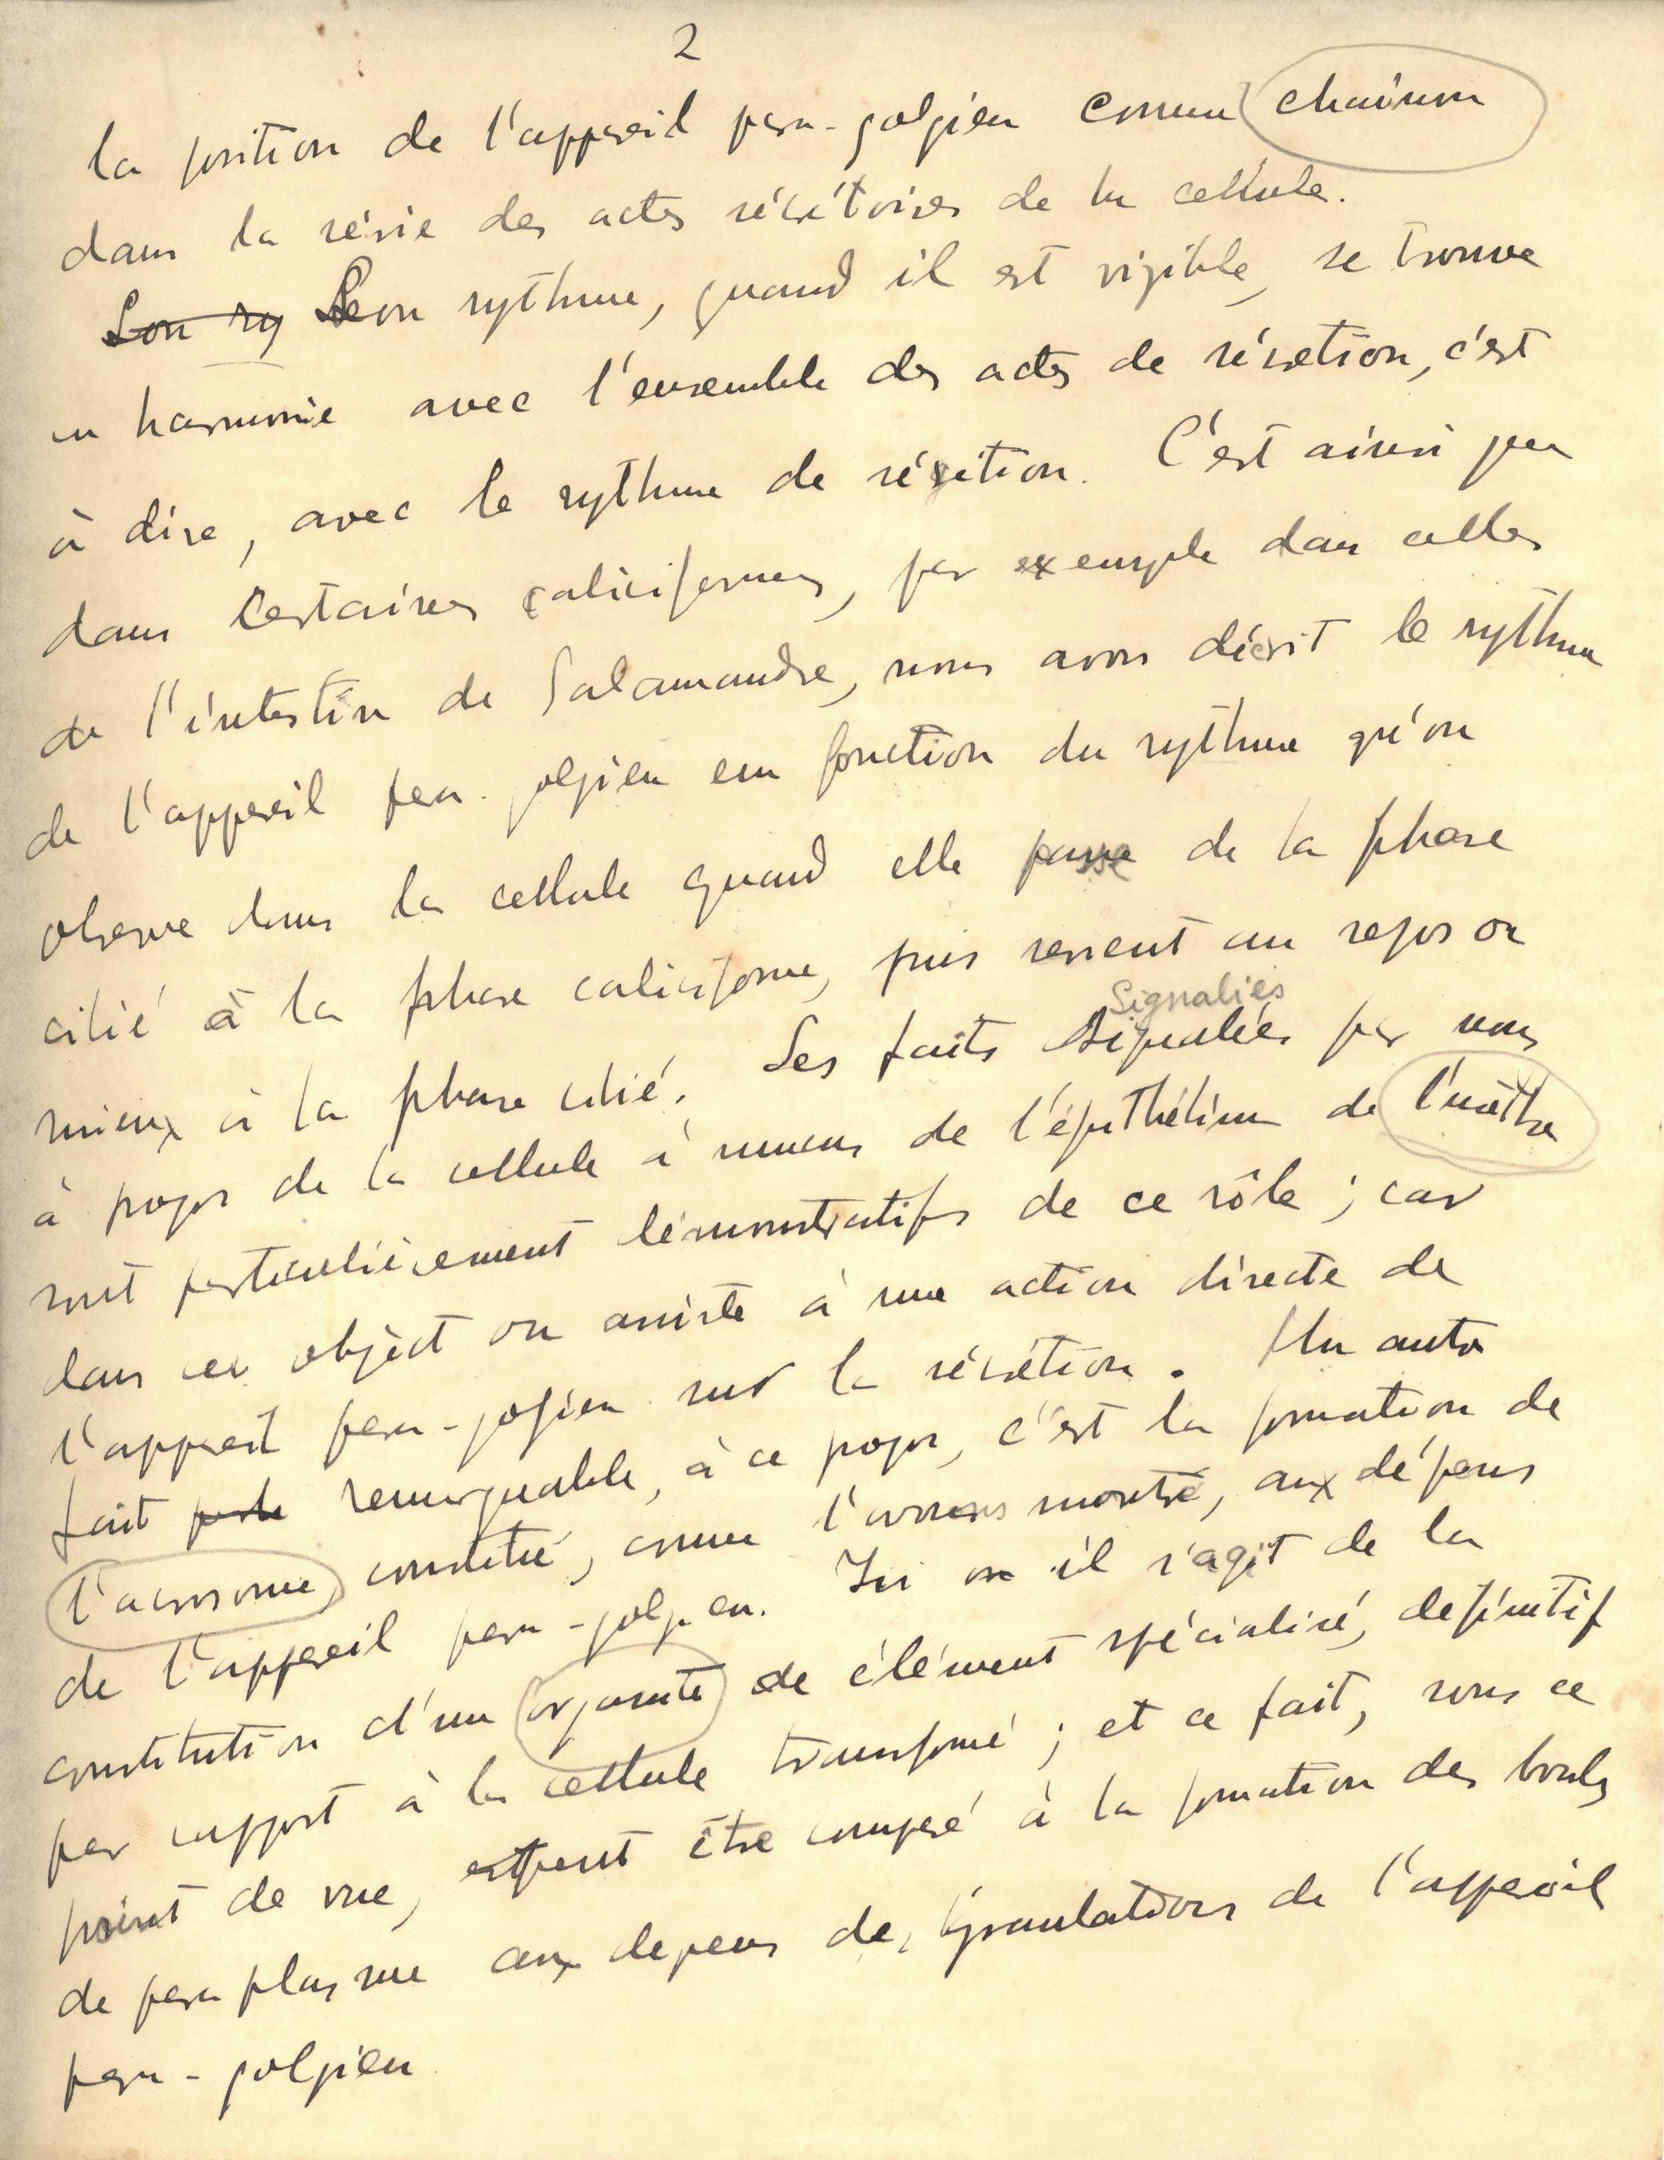 2
la position de l'appareil para-golgien comme chainon
dans la série des actes sécrétoires de la cellule.
Son ry Son rythme, quand il est visible, se trouve
en harmonie avec l'ensemble des actes de sécretion, c'est
à dire, avec le rythme de sécrétion. C'est ainsi que
dans certaines caliciformes, par exemple dans celles
de l'intestin de Salamandre, nous avons décrit le rythme
de l'appareil para-golgien em fonction du rythme qu'on
observe dans la cellule quand elle passe de la phase
cilié à la phase caliciforme, puis revient au repos ou
mieux à la phase cilié. Les faits signaliés par nous
Signaliés
à propos de la cellule à mucus de l'épithélium de l'urèthre
sont particulièrement démonstratifs de ce rôle; car
dans cet objèct on assiste à une action directe de
l'appareil para-golgien sur la sécrétion. Un autre
fait remarquable, à ce propos, c'est la formation de
l'acrosome, constitué, comme l'avons montré, aux dépens
de l'appareil para-golgien. Ici on il s'agit de la
constitution d'un organite de élément spécialisé, definitif
par rapport à la cellule transformé; et ce fait, sous ce
point de vue, peut être comparé à la formation des boules
de paraplasme aux depens de granulations de l'appareil
para-golgien